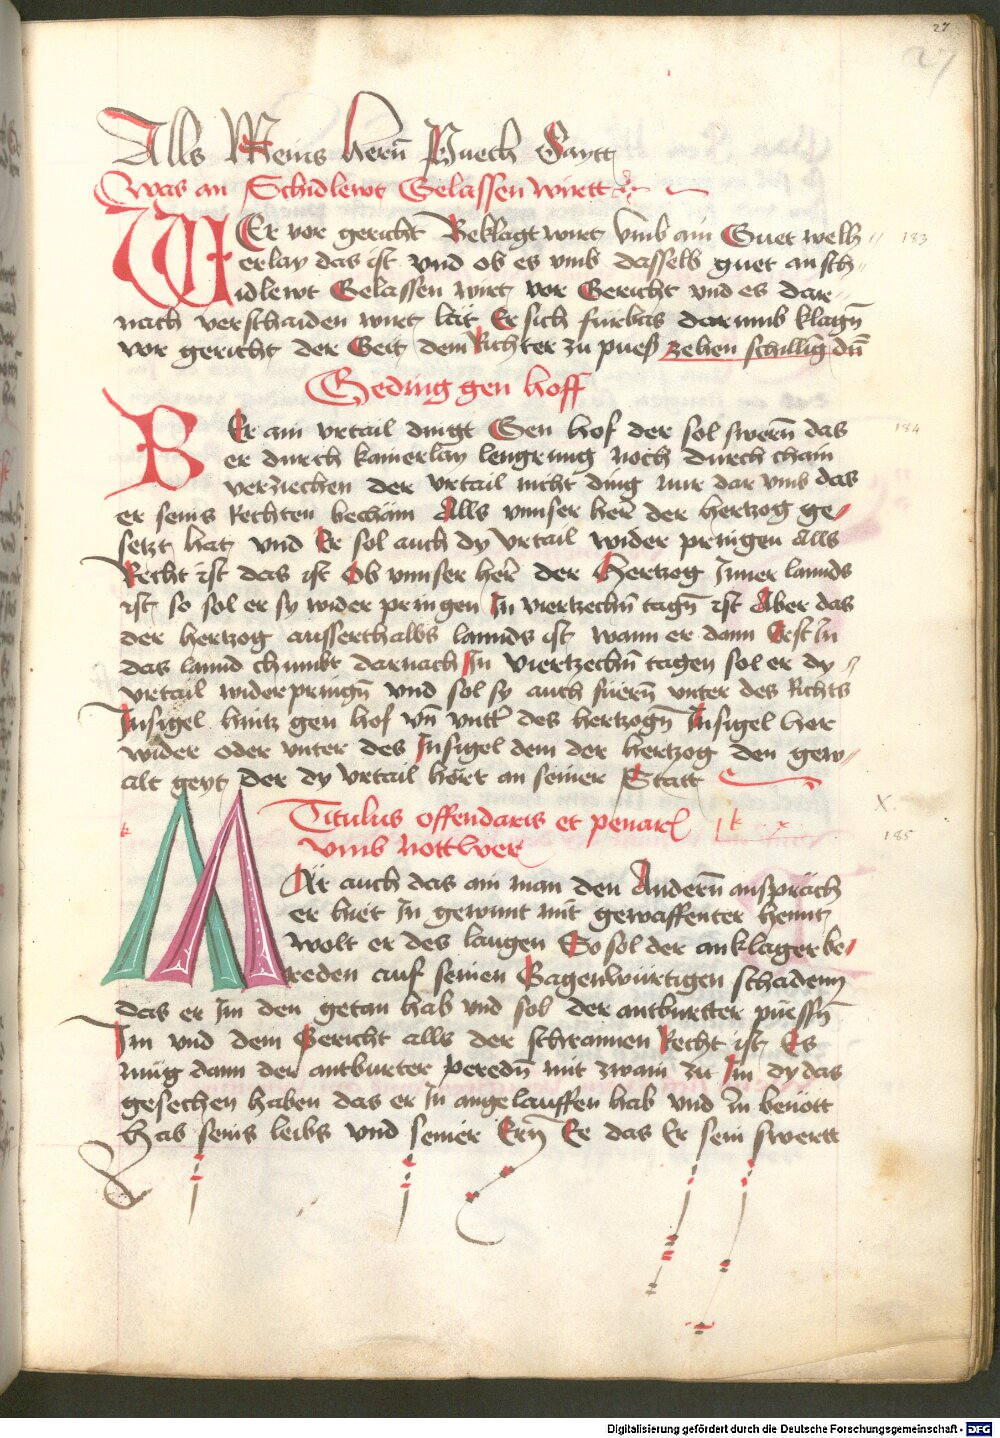 27
27
Alls Meins herñ Puech Saytt
Was an Schidlewt Gelassen wirtt
WEr vor gericht Beklagt wirt vmb ain Guet welh // 183
erlay das ist vnd ob es vmb dasselb guet an sch//
idlewt Gelassen wirt vor Gericht vnd es dar//
nach verschaiden wirt lät Er sich fürbas darumb klagñ
vor gericht der Geit dem Richter zu pueß zehen schilling dñ
Geding gen hoff
BEr ain vrtail dingt Gen hof der sol swerñ das 184
er durch kainerlay lengrung noch durch chain
verziechen der vrtail nicht ding nur dar vmb das
er seins Rechten bechäm Alls vnnser her̃ der hertzog ge/
setzt hat vnd Er sol auch dy vrtail wider pringen Alls
Recht ist das ist Ob vnnser her̃ der Hertzog Inner lannds
ist so sol er sy wider pringen In viertzechñ tagñ ist Aber das
der hertzog ausserthalbs lannds ist wann er dann Erst In
das lannd chumbt darnach In viertzechñ tagen sol er dy //
vrtail wider pringñ vnd sol sy auch füerñ vnter des Richts
Insigel hintz gen hof vñ vntt̃ des hertzogñ Insigel her
wider oder vnter des Insigel dem der hertzog den gew/
alt geyt der dy vrtail hört an seiner Statt
Titulus offendaris et penarl k x. X.
vmb Nottwer 185
k
MÄr auch das ain man den Anderñ anspräch
er hiet In gewunt mit gewaffenter hennt
wolt er des laugen So sol der anklager be/
reden auf seinen Gagenwürtigen schadenn
das er Im den getan hab vnd sol der antburtter püessñ
Im vnd dem Gericht alls der schrannen Recht ist Es
müg dann der antburter peredñ mit zwain zu Im dy das
gesechen haben das er In angelauffen hab vnd In benött
Hab seins leibs vnd seiner Erñ Ee das Er sein swertt
Digitalisierung gefördert durch die Deutsche Forschungsgemeinschaft - DFG